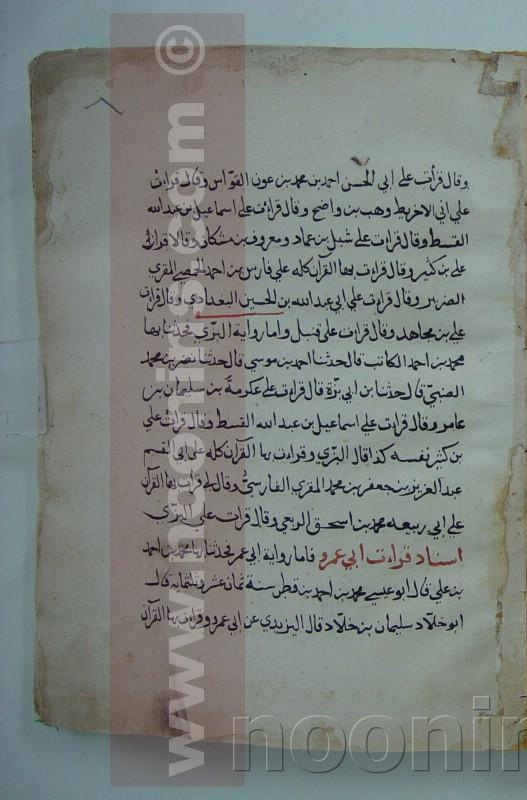 وقال قرأت على ابي الحسن احمد بن محمد بن عون القواس وقال قراءت
على ابي الاخريط وهب بن واضح وقال قراءت على اسماعيل بن عبد الله
القسط وقال قراءت على شبل بن عباد ومعروف بن مشكان وقالا قرانا
على بن كثير وقال قراءت بها القرآن كله على فارس بن احمد الحمصي المقري
الضرير وقال قراءت على ابي عبد الله بن الحسين البغدادي وقال قرات
على بن مجاهد وقال قرات على قنبل واما رواية البزي فحدثنا بها
محمد بن احمد الكاتب قال حدثنا احمد بن موسى قال حدثنا نصر بن محمد
الضبي قال حدثنا بن ابي بزة قال قراءت على عكرمة بن سليمان بن
عامر وقال قراءت على اسماعيل بن عبد الله القسط وقال قرات على
بن كثير نفسه كذا قال البزي وقراءت بها القرآن كله على ابي القسم
عبد العزيز بن جعفر بن محمد المقري الفارسي وقال لي قرات بها القرآن
على ابي ربيعه محمد بن اسحق الربعي وقال قرات على البزي
اسناد قراءت ابي عمرو فاما رواية ابي عمر فحدثنا بها محمد بن احمد
بن علي قال ابو عيسى محمد بن احمد بن قطن سنة ثمان عشر وثلثمائه قال
ابو خلاد سليمان بن خلاد قال اليزيدي عن ابي عمرو وقرات بها القرآن
www.noonirs.com ©
noonir